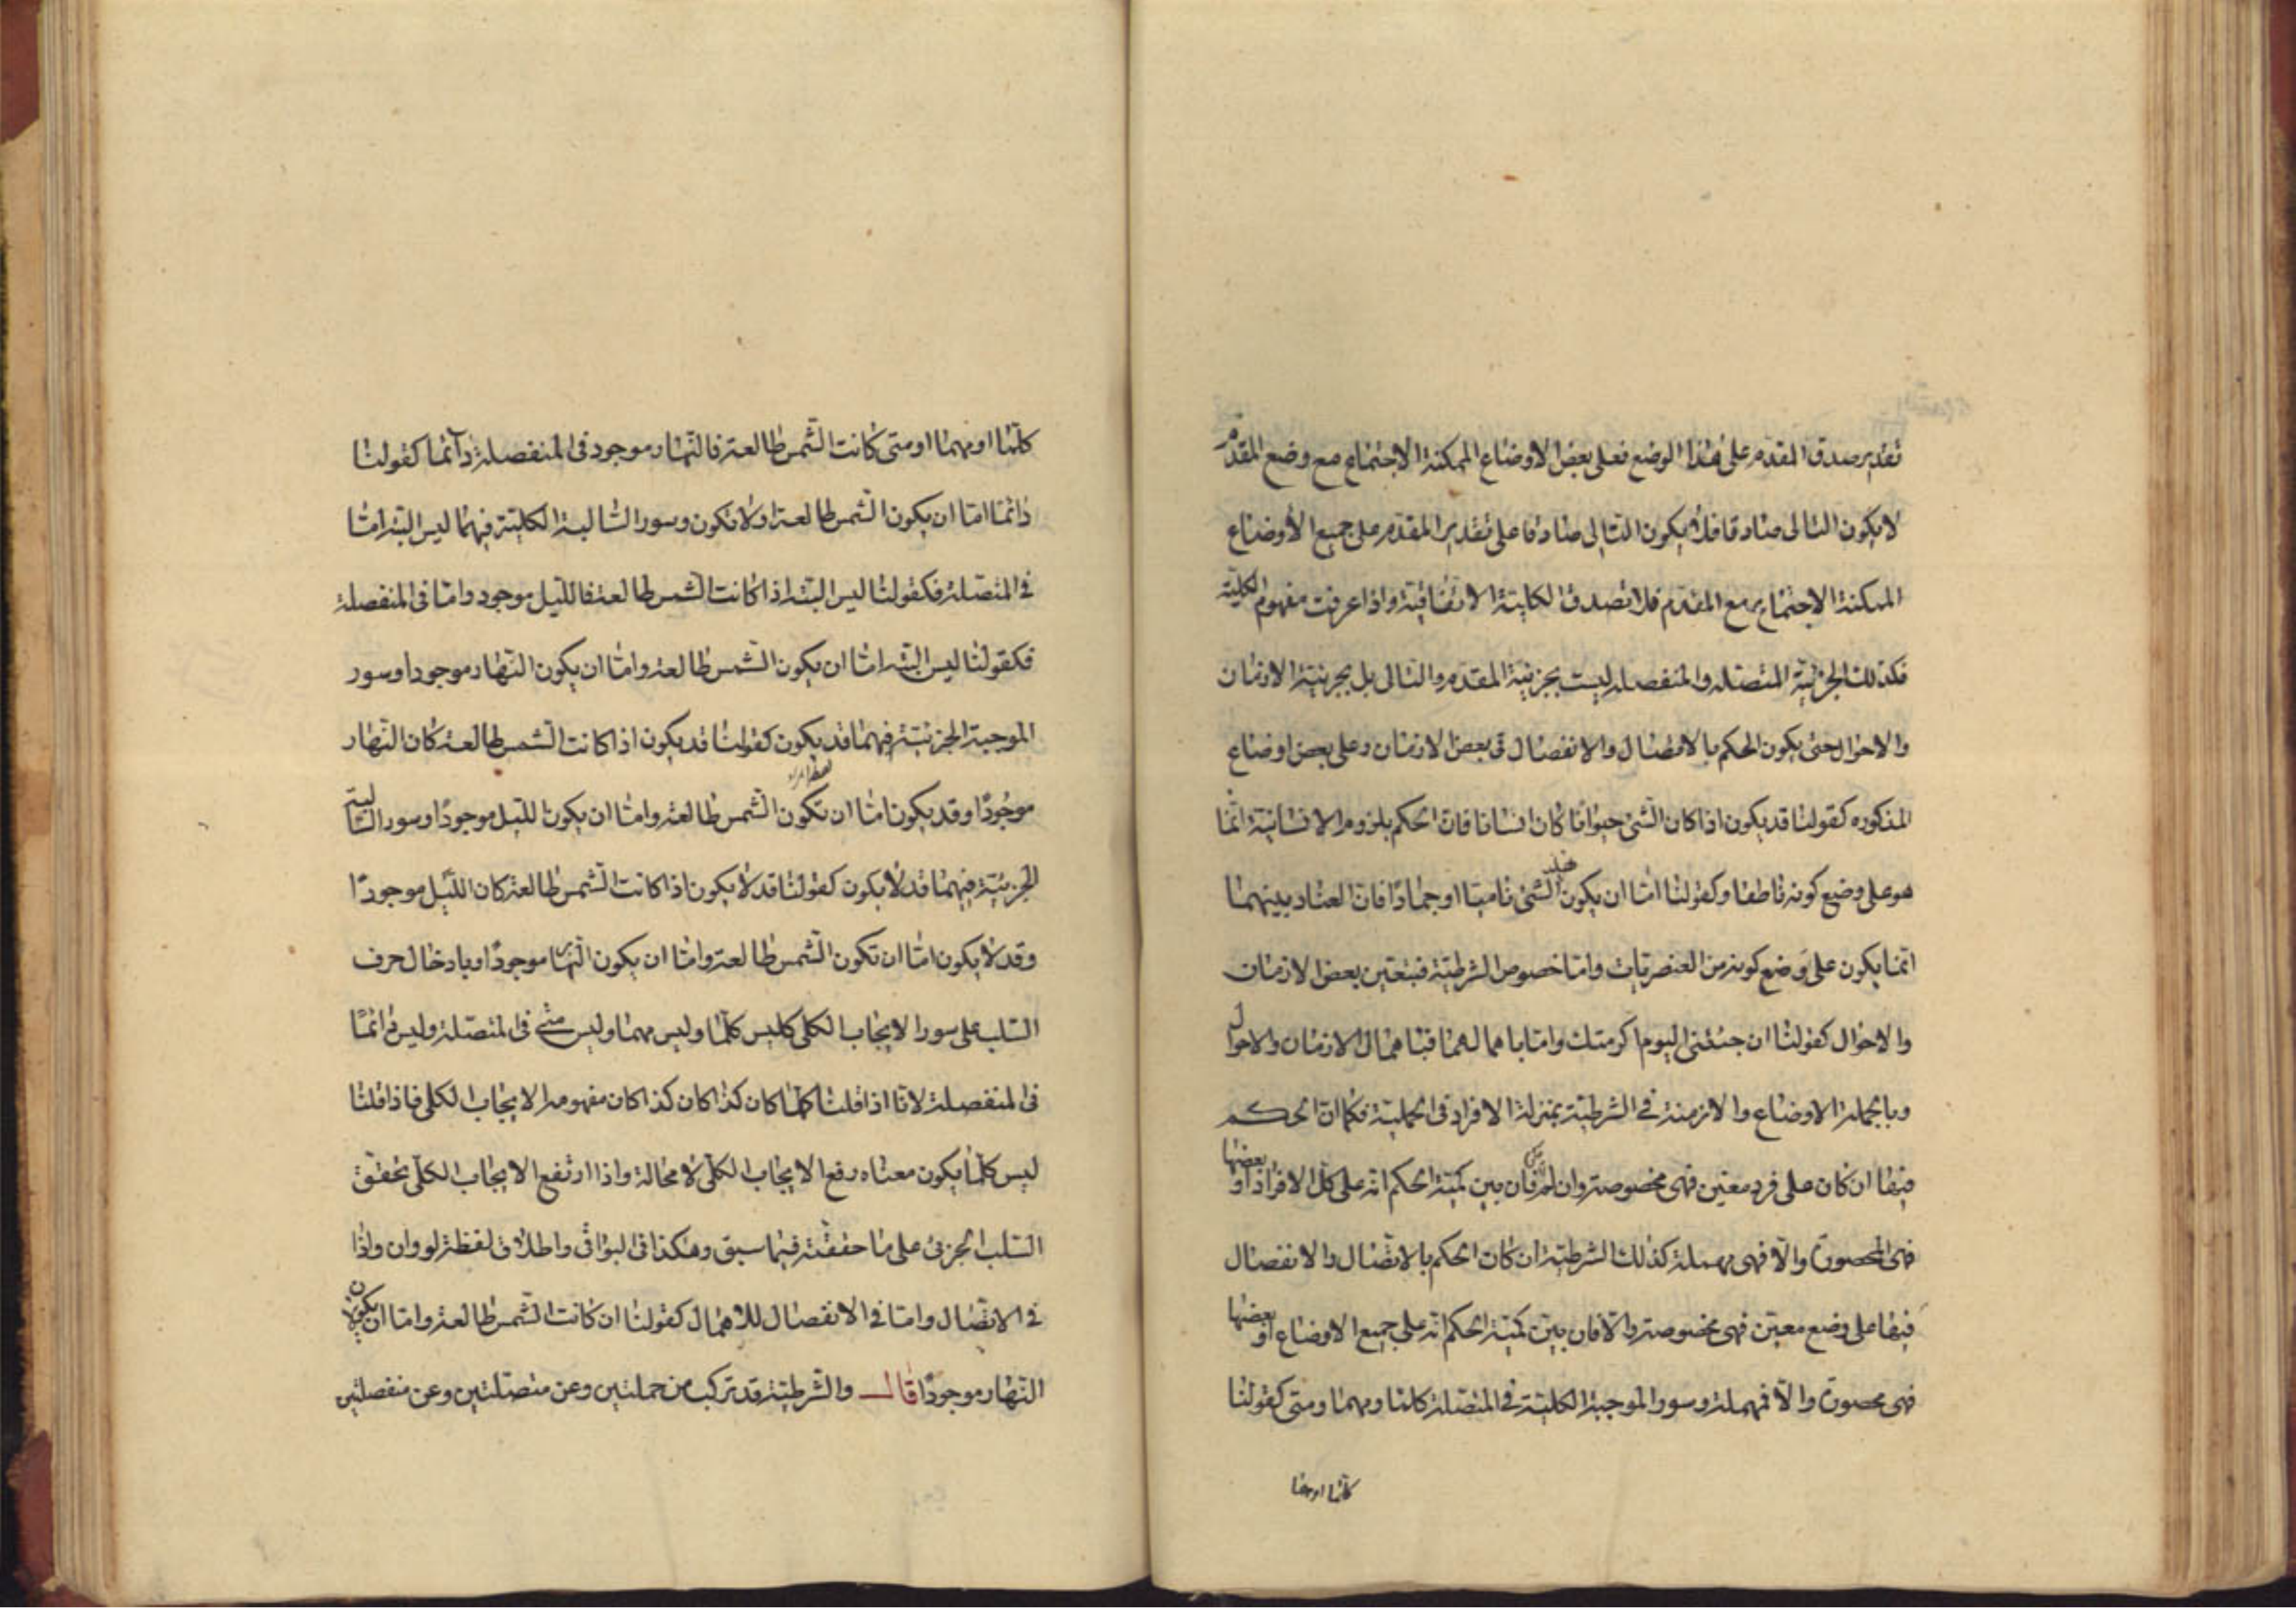 تقدير صدق المقدم على هذا الوضع فعلى بعض الاوضاع الممكنة الاجتماع مع وضع المقدم
لا يكون التالى صادقا فلا يكون التالى صادقا على تقدير المقدم على جميع الأوضاع
الممكنة الاجتماع مع المقدم فلا تصدق الكلية الاتفاقية واذا عرفت مفهوم الكلية
فكذلك الجزئية المتصله والمنفصله ليست بجزئية المقدم والتالى بل بجزئية الازمان
والاحوال حتى يكون الحكم بالاتصال والانفصال فى بعض الازمان وعلى بعض اوضاع
المذكوره كقولنا قد يكون اذا كان الشئ حيوانا كان انسانا فان الحكم بلزوم الانسانية انما
هو على وضع كونه ناطقا وكقولنا امّا ان يكون الشئ ناميا او جمادًا فان العناد بينهما
انما يكون على وضع كونه من العنصريات وامّا خصوص الشرطية فبتعين بعض الازمان
والاحوال كقولنا ان جئتنى اليوم اكرمتك وامّا باهمالهما فباهمال الازمان والاحوال
وبالجملة الاوضاع والازمنة فى الشرطية بمنزلة الافراد فى الحملية فكما ان الحكم
فيها ان كان على فرد معين فهى مخصوصة وان لم فان بين كمية الحكم انه على كل الافراد او بعضها
فهى المحصورة والّا فهى مهملة كذلك الشرطية ان كان الحكم بالاتصال والانفصال
فيها على وضع معين فهى مخصوصة والّا فان بين كمية الحكم انه على جميع الاوضاع او بعضها
فهى محصورة والّا فمهملة وسور الموجبة الكلية فى المتصلة كلما ومهما ومتى كقولنا
كلما او مهما
كلما او مهما او متى كانت الشمس طالعة فالنهار موجود فى المنفصلة دآئما كقولنا
دائما امّا ان يكون الشمس طالعة او لا تكون وسور السالبة الكلية فيهما ليس البتة امّا
فى المتصلة فكقولنا ليس البتة اذا كانت الشمس طالعة فالليل موجود وامّا فى المنفصلة
فكقولنا ليس البتة امّا ان يكون الشمس طالعة وامّا ان يكون النهار موجودا وسور
الموجبة الجزئية فيهما قد يكون كقولنا قد يكون اذا كانت الشمس طالعة كان النهار
موجودًا وقد يكون امّا ان تكون الشمس طالعة وامّا ان يكون الليل موجودًا وسور السالبة
الجزئية فيهما قد لا يكون كقولنا قد لا يكون اذا كانت الشمس طالعة كان الليل موجودًا
وقد لا يكون امّا ان تكون الشمس طالعة وامّا ان يكون النهار موجودًا وبادخال حرف
السلب على سور الايجاب الكلى كليس كلما وليس مهما وليس متى فى المتصلة وليس دائمًا
فى المنفصلة لانا اذا قلنا كلما كان كذا كان كذا كان مفهومه الايجاب الكلى فاذا قلنا
ليس كلما يكون معناه رفع الايجاب الكلى لا محالة واذا ارتفع الايجاب الكلى تحقق
السلب الجزئ على ما حققته فيما سبق وهكذا فى البواقى واطلاق لفظة لو وان واذا
فى الاتصال وامّا فى الانفصال للاهمال كقولنا ان كانت الشمس طالعة وامّا ان يكون
النهار موجودًا قال والشرطية قد تركب من حمليتين وعن متصلتين وعن منفصلتين